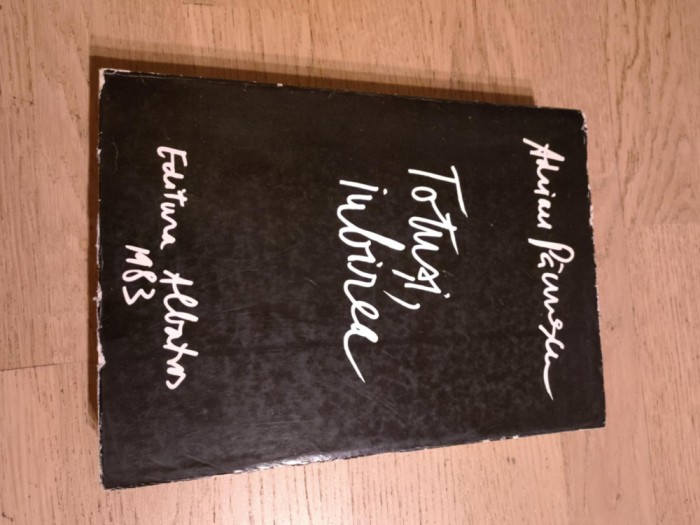 Adrian Păunescu
Totuși,
iubirea
Editura Albatros
1983